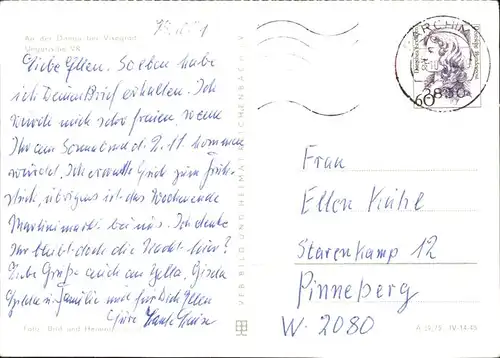 An der Donau bei Visegrad
Ungarische VR
Liebe Ellen. Soeben habe
ich Deinen Brief erhalten. Ich
würde mich sehr freuen, wenn
Ihr am Sonnabend d. 2. 11. kommen
würdet. Ich erwarte Euch zum Früh-
stück, übrigens ist das Wochenende
Martinimarkt bei uns. Ich denke
Ihr bleibt doch die Nacht hier?
Liebe Grüße auch an Gisela
Familie und für Dich Ellen
Eure
Foto: Bild und Heimat
VEB BILD UND HEIMAT REICHENBACH V
PARCHIM
2850
60
Deutsche Bundespost
Frau
Ellen Kühl
Starenkamp 12
Pinneberg
W. 2080